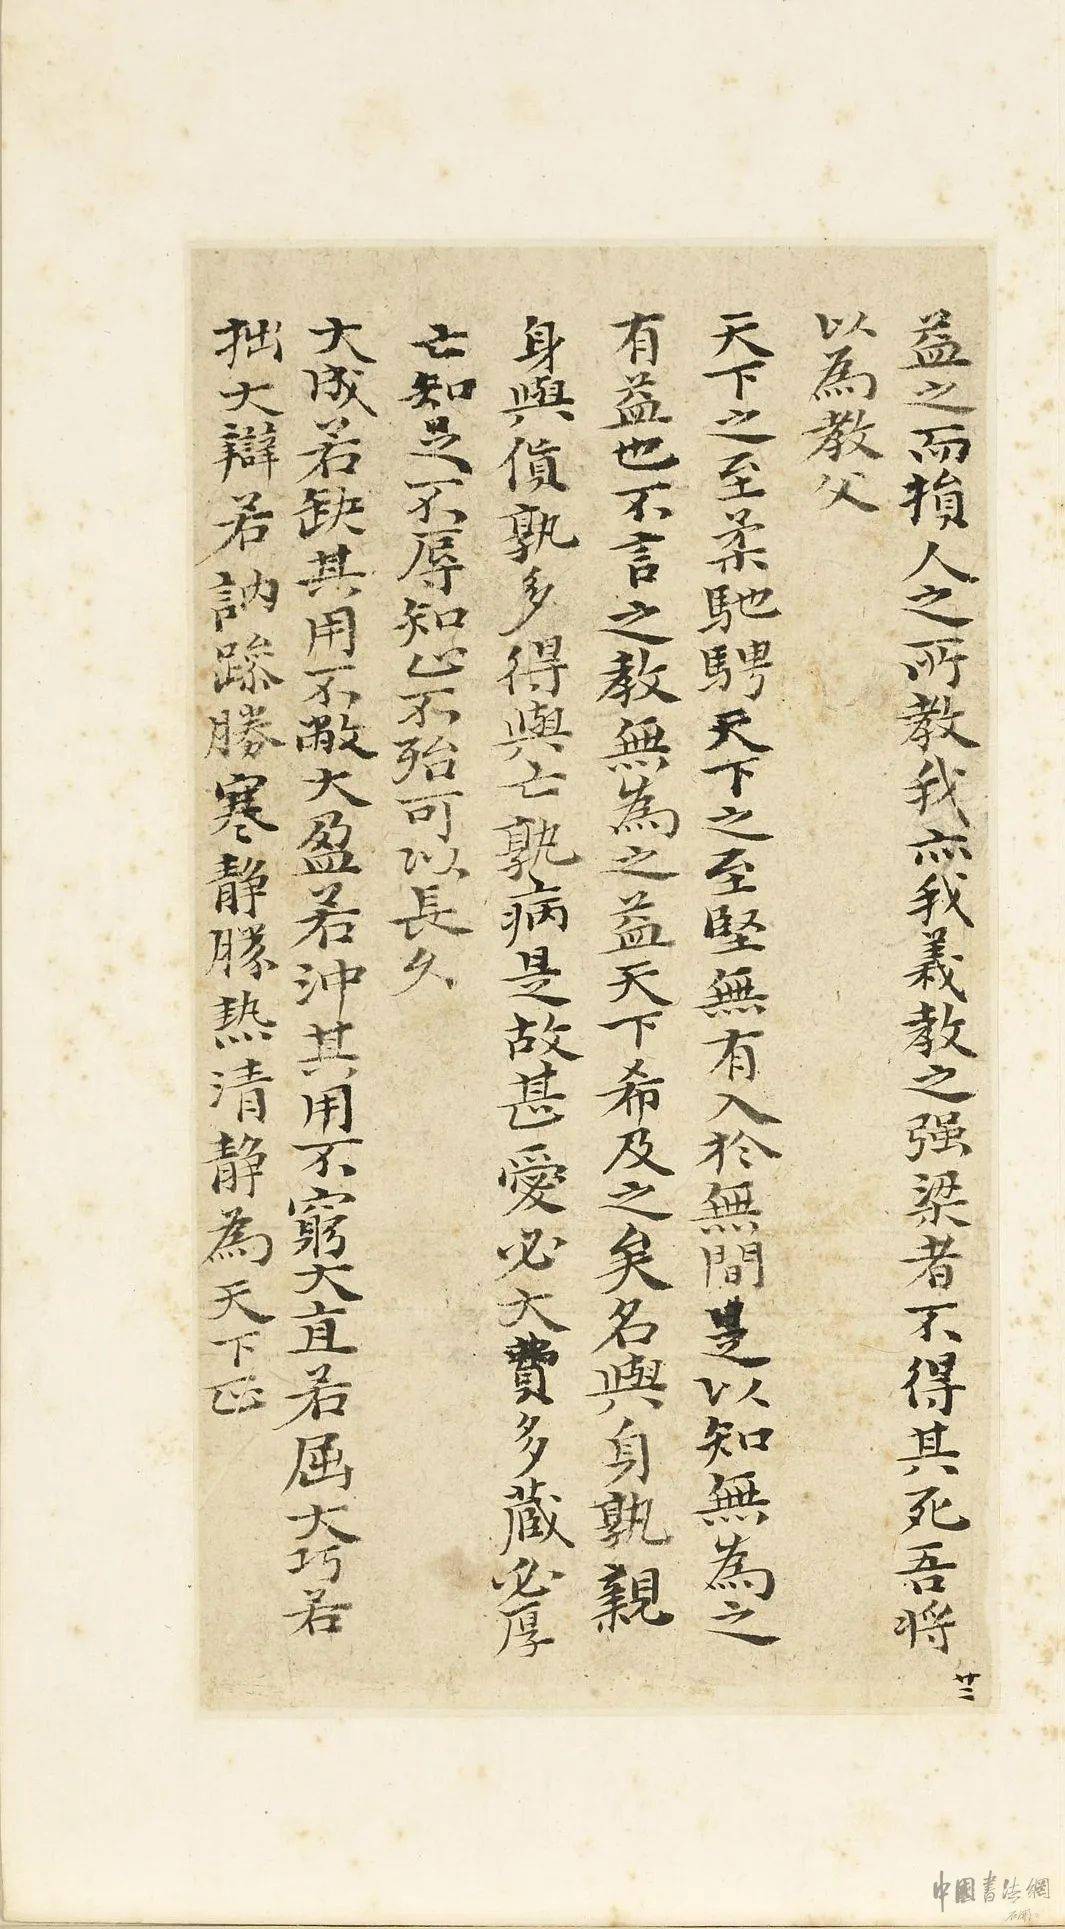 益之而損人之所教我亦我義教之强梁者不得其死吾将
以為教父
天下之至柔馳騁天下之至堅無有入於無間是以知無為之
有益也不言之教無為之益天下希及之矣名與身孰親
身與貨孰多得與亡孰病是故甚愛必大費多蔵必厚
亡知足不辱知止不殆可以長久
大成若缺其用不敝大盈若沖其用不窮大直若屈大巧若
拙大辯若訥躁勝寒静勝热清静為天下正
廿二
中國書法網